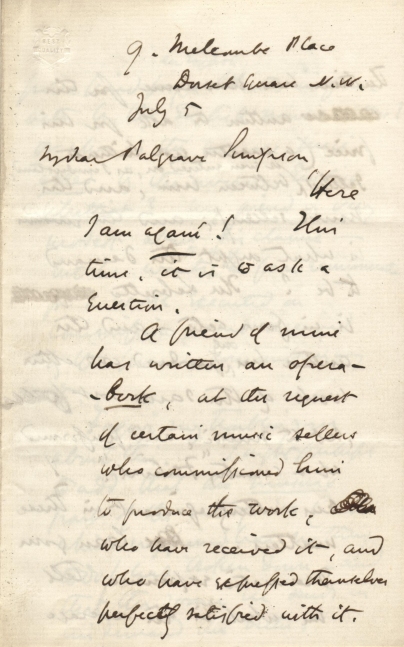 9. Melcombe Place
Dorset Square N.W.
July 5
My dear Palgrave Simpson
"Here
I am again"! This
time, it is to ask a
question.
A friend of mine
has written an opera-
-book, at the request
of certain music sellers
who commissioned him
to produce the work,
who have received it, and
who have expressed themselves
perfectly satisfied with it.